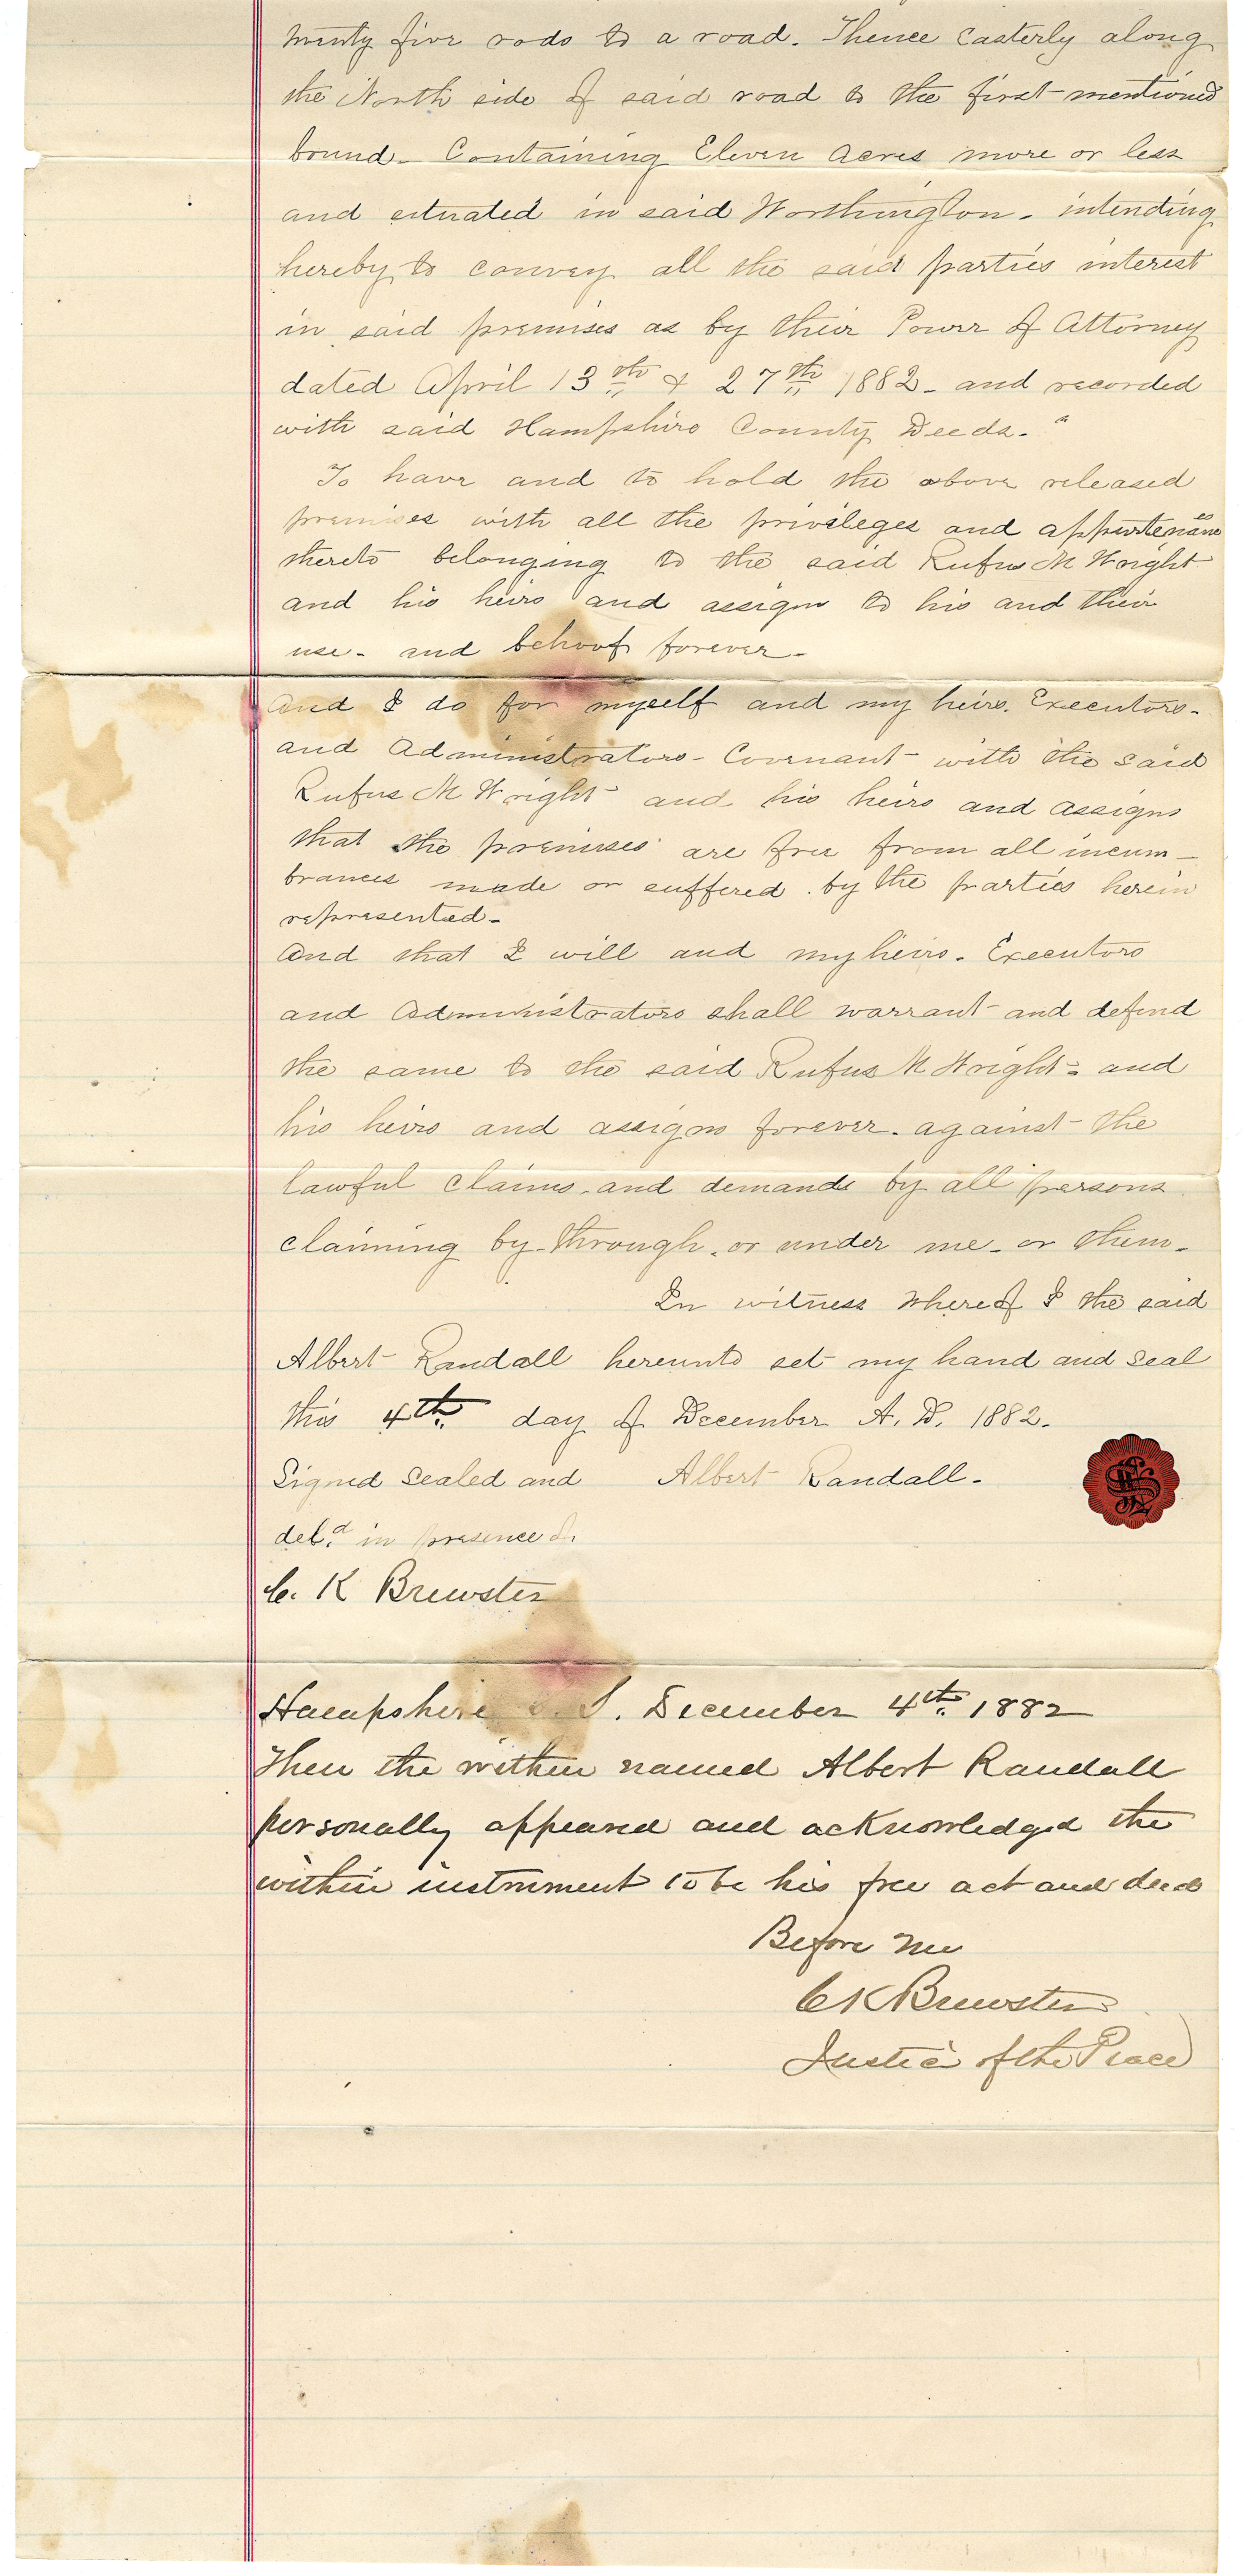 twenty five rods to a road. Thence Easterly along
the North side of said road to the first mentioned
bound. Containing Eleven Acres more or less
and situated in said Worthington - intending
hereby to convey all the said parties interest
in said premises as by their Power of Attorney
dated April 13th & 27th 1882 - and recorded
with said Hampshire County Deeds."
To have and to hold the above released
premises with all the privileges and appurtenances
thereto belonging to the said Rufus M Wright
and his heirs and assigns to his and their
use - and behoof forever -
And I do for myself and my heirs. Executors -
and Administrators - Covenant with the said
Rufus M Wright and his heirs and assigns
that the premises are free from all incum-
brances made or suffered by the parties herein
represented -
And that I will and my heirs. Executors
and Administrators shall warrant and defend
the same to the said Rufus M Wright - and
his heirs and assigns forever. against the
lawful claims and demands by all persons
claiming by - through, or under me - or them -
In witness whereof I the said
Albert Randall hereunto set my hand and seal
this 4th day of December A. D. 1882.
Signed Sealed and Albert Randall -
deld in presence of.
C. K Brewster
Hampshire S. S. December 4th 1882
Then the within named Albert Randall
personally appeared and acknowledged the
within instrument to be his free act and deed
Before me
C K Brewster
Justice of the Peace